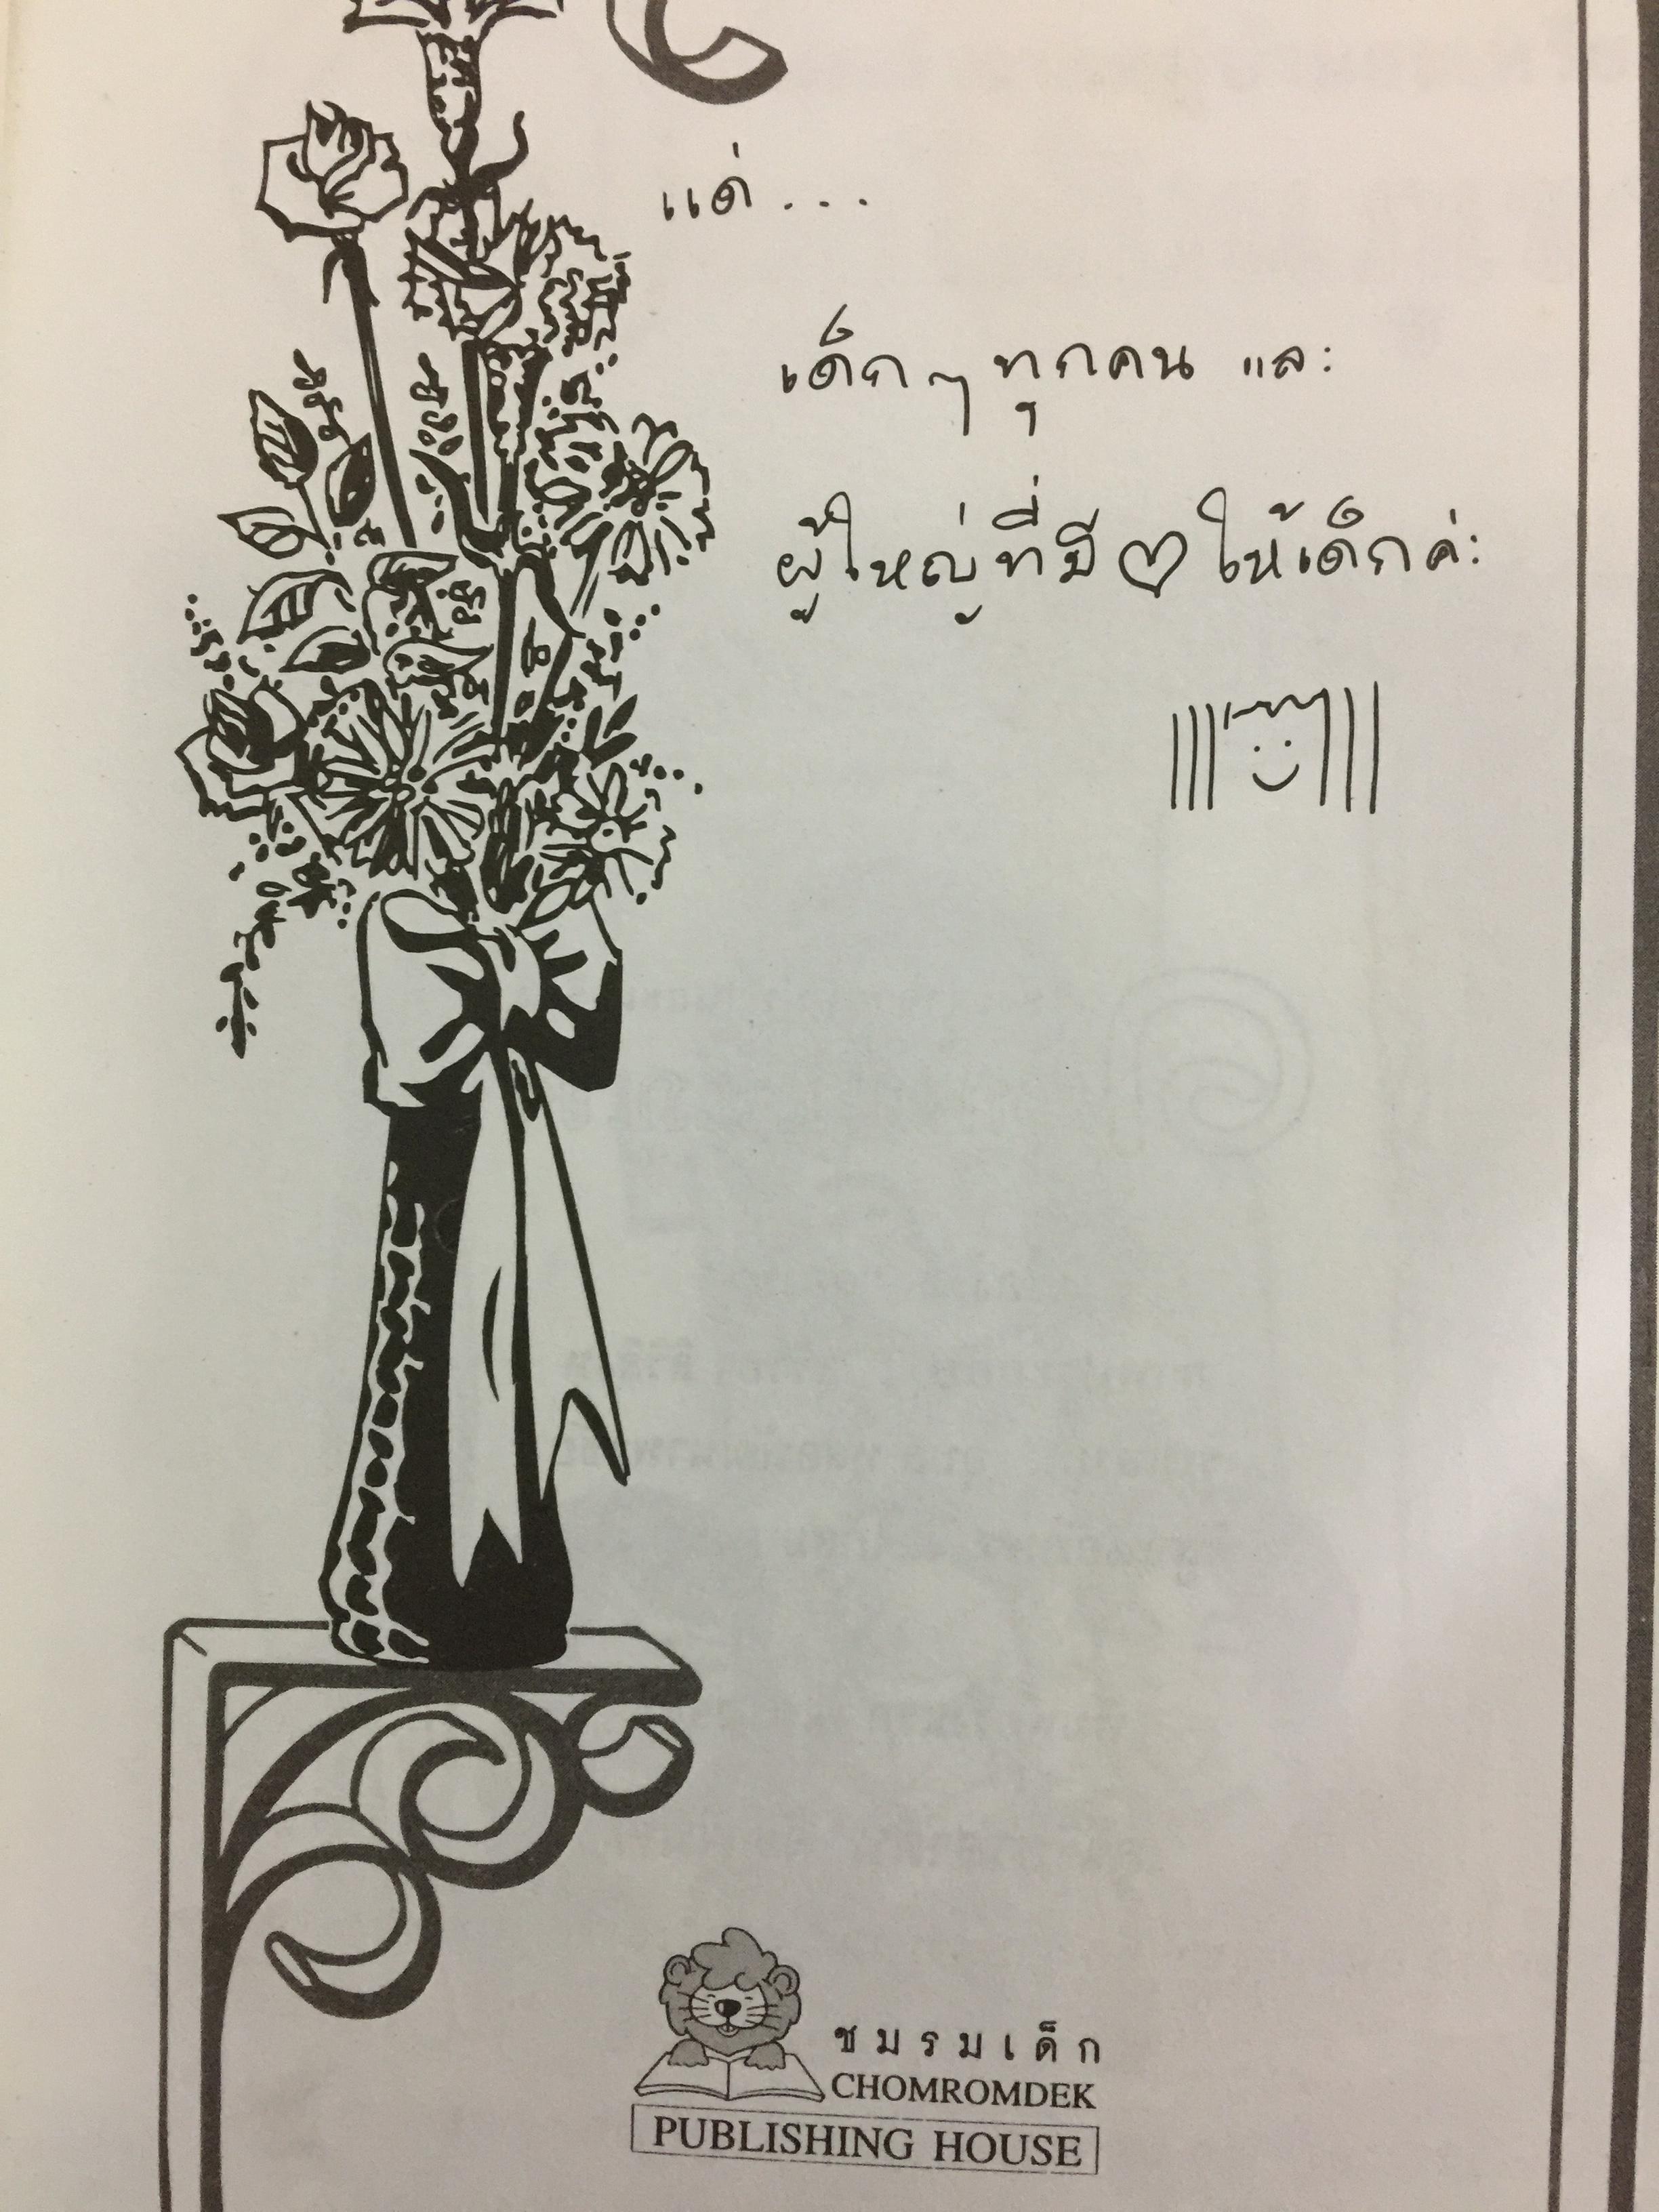 แด่...
เด็กๆ ทุกคน และ
ผู้ใหญ่ที่มี♡ให้เด็กค่ะ
ชมรมเด็ก
CHOMROMDEK
PUBLISHING HOUSE